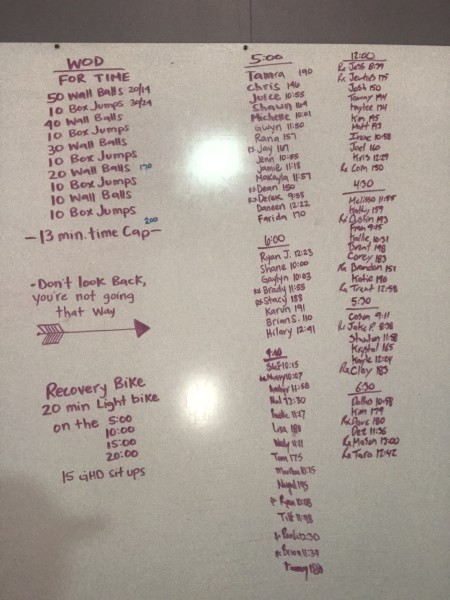 WOD
FOR TIME
50 Wall Balls 20/14
10 Box Jumps 30/24
40 Wall Balls
10 Box Jumps
30 Wall Balls
10 Box Jumps
20 Wall Balls 170
10 Box Jumps
10 Wall Balls
10 Box Jumps
200
-13 min. time Cap-
-Don't look Back,
you're not going
that way
Recovery Bike
20 min Light bike
on the 5:00
10:00
15:00
20:00
15 GHD sit ups
5:00
Tamra 190
Chris 146
Juice 10:55
Shawn 169
Michelle 10:01
Gwyn 11:50
Rana 157
Jay 167
Jenn 10:55
Jamie 11:18
Makayla 11:57
Rx Dean 150
Rx Derek 9:58
Daneen 12:22
Farida 170
6:00
Ryan J. 12:23
Shane 10:00
Gaylyn 10:03
Rx Brady 11:55
Rx Stacy 188
Karyn 191
Brian S. 110
Hilary 12:41
9:00
10:15
10:07
11:58
12:30
11:27
Lisa
11:11
Tom 175
10:15
195
Ryan
Tiff
12:30
Brian 11:39
Tammy
12:00
Rx Jess 8:59
Rx 175
Josh 150
Tammy
Haylee 171
Kim 195
Matt 193
Irene 10:58
Joel 160
Kris 12:29
Rx Cam 150
4:30
Melissa 11:55
Kathy 159
Rx Dustin 193
Fran 9:15
Katie 10:31
Brent 198
Corey 183
Rx Brandon 151
Katie 190
Rx Trent 12:58
5:30
Coson 9:11
Rx Jake P. 8:38
11:58
Krystal 165
Kayle 12:24
Rx Clay 185
6:30
Dallas 10:58
Kim 179
Rx Dave 180
Dez 11:36
Rx Mason 13:00
Rx Tara 12:42